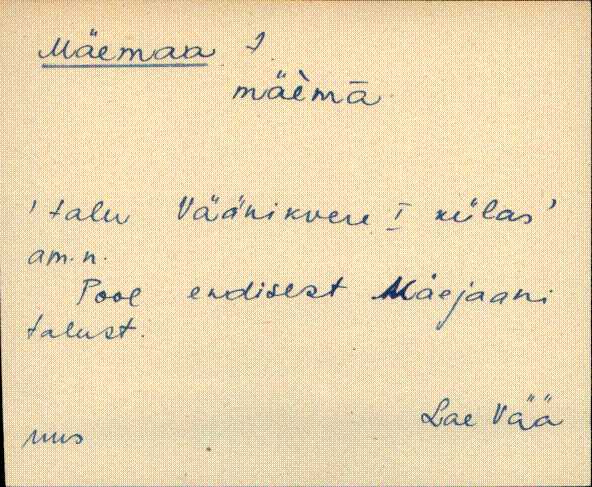 Mäemaa I
mäèmā
' talu Väänikvere I külas '
am.n.
Pool endisest Mäejaani
talust.
Lae Vää
uus